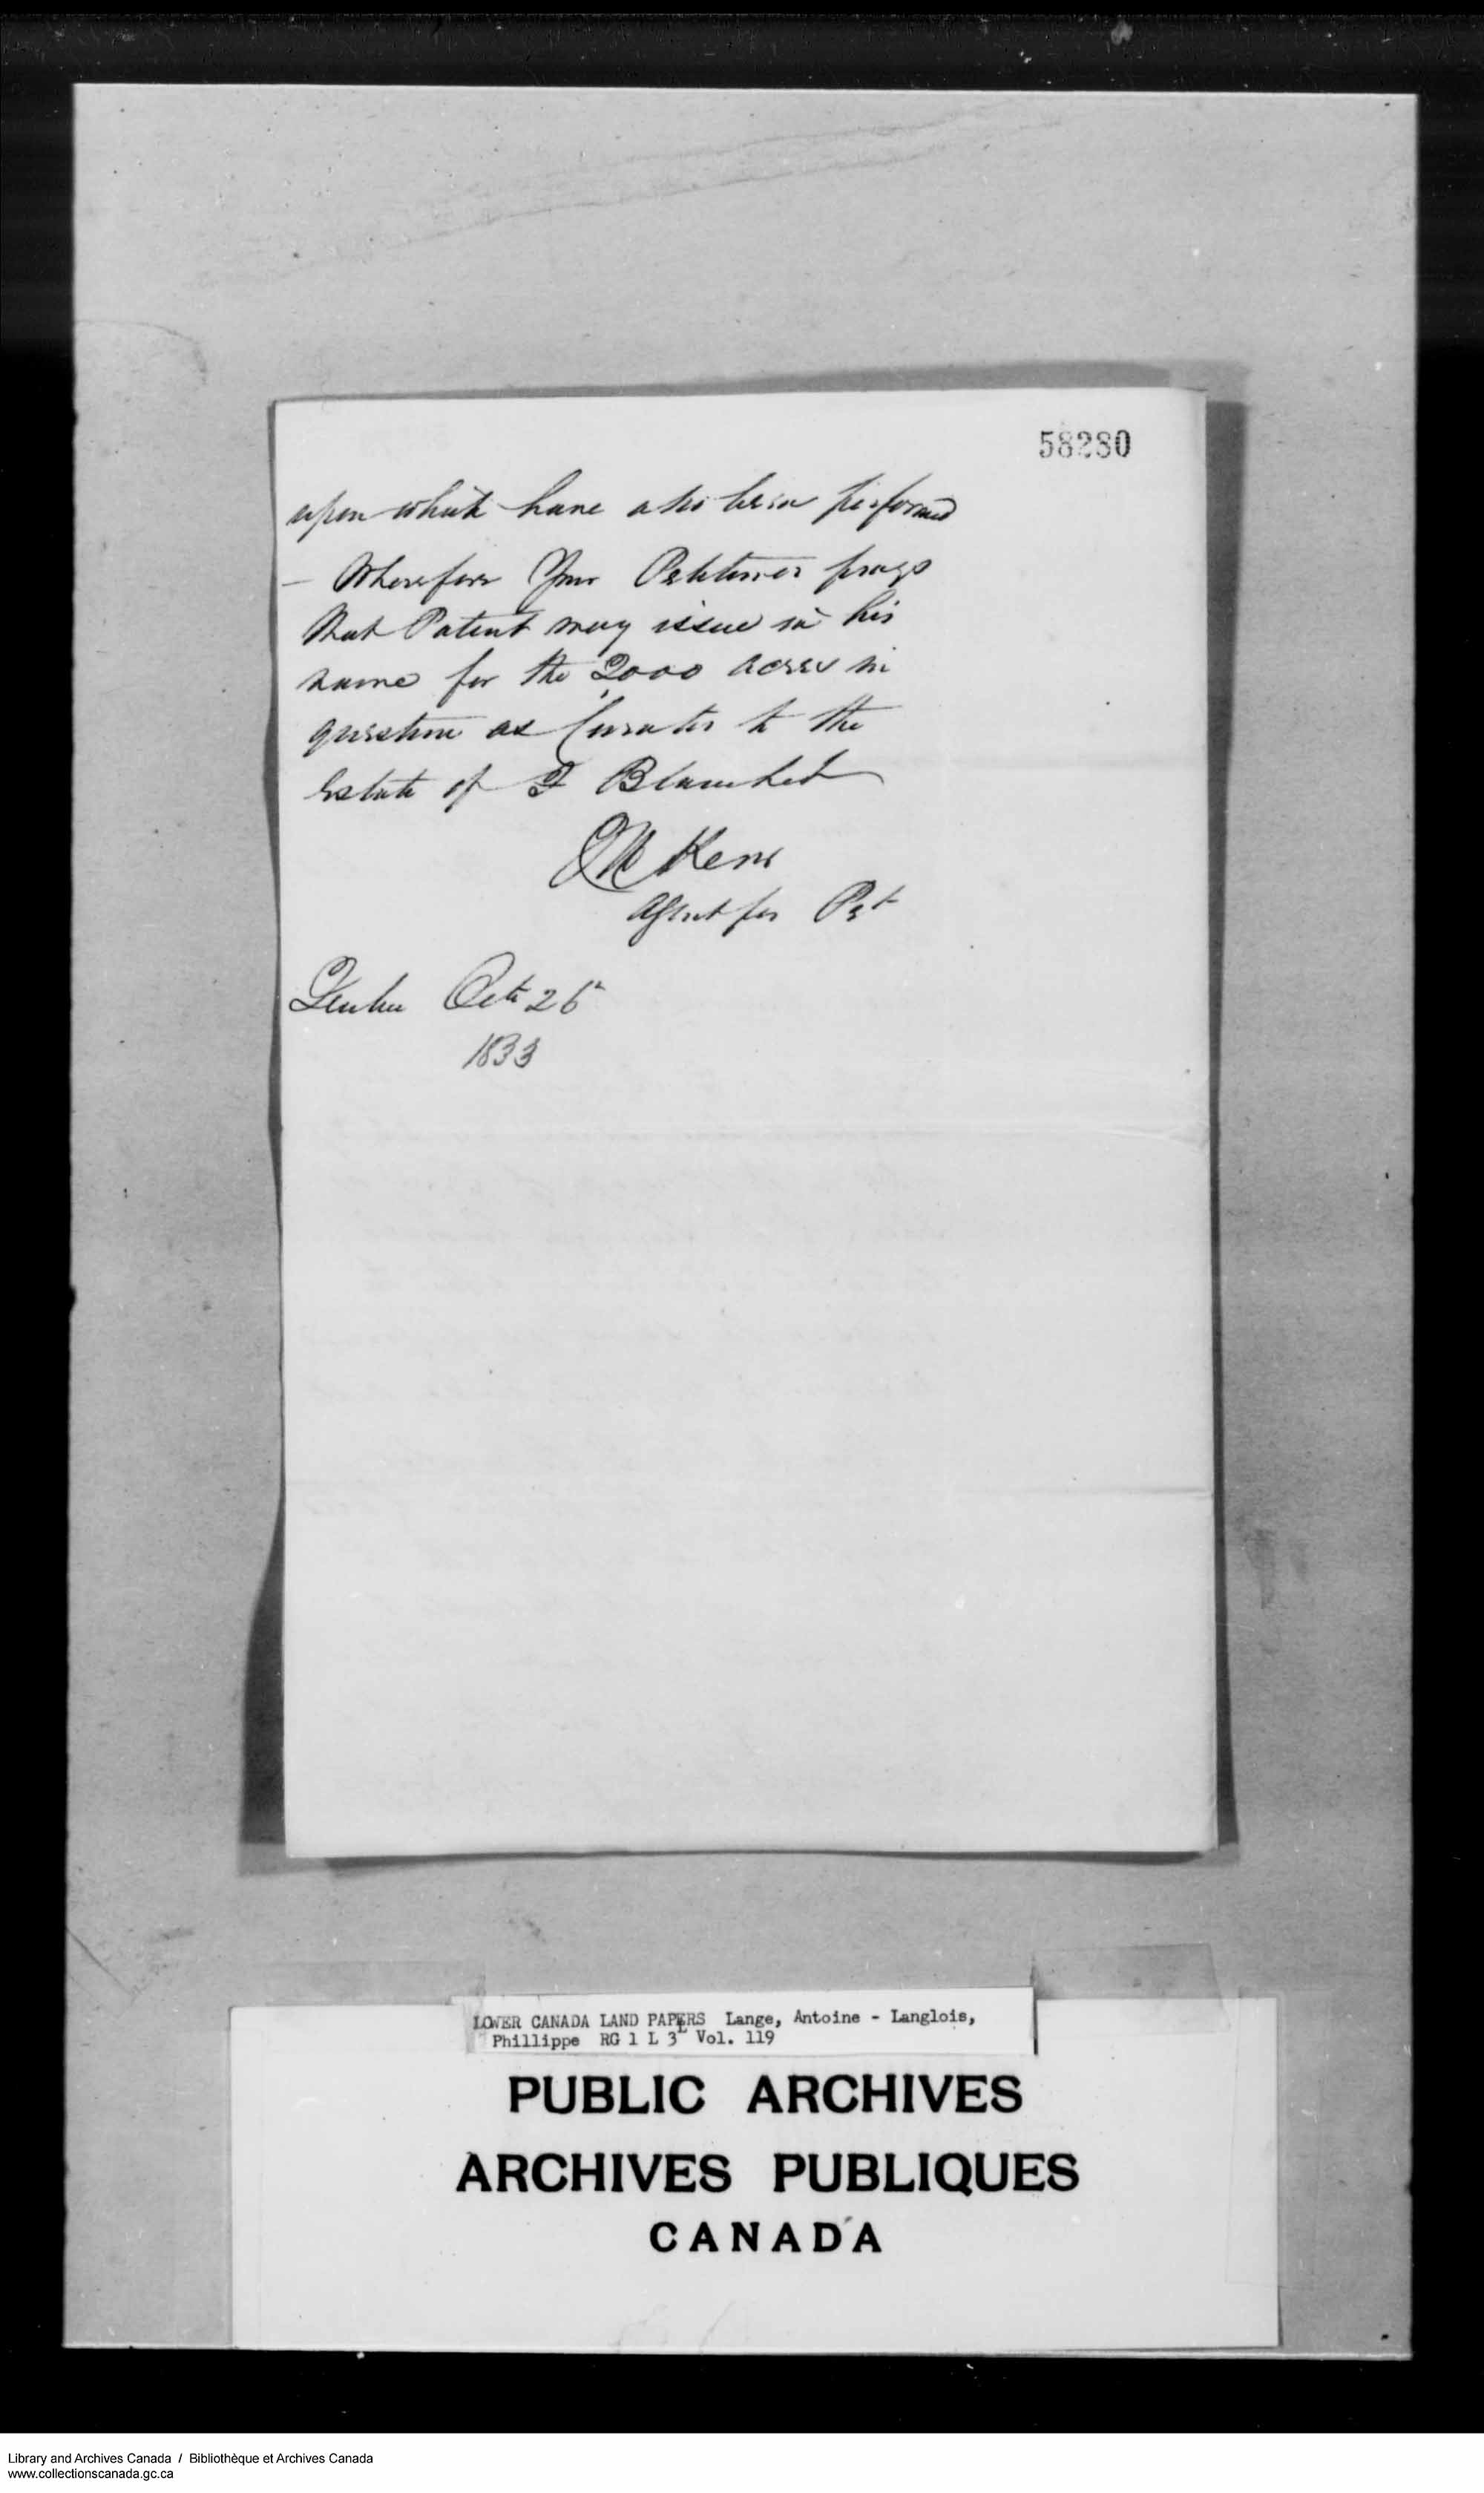 58280
upon which have also been performed
— Wherefore Your Petitioner prays
that Patent may issue in his
name for the 2000 acres in
question as Curator to the
Estate of F Blanchet
Kerr
Agent for Pet
Quebec Oct 26
1833
LOWER CANADA LAND PAPERS Lange, Antoine - Langlois,
Phillippe RG 1 L 3L Vol. 119
PUBLIC ARCHIVES
ARCHIVES PUBLIQUES
CANADA
Library and Archives Canada / Bibliothèque et Archives Canada
www.collectionscanada.gc.ca